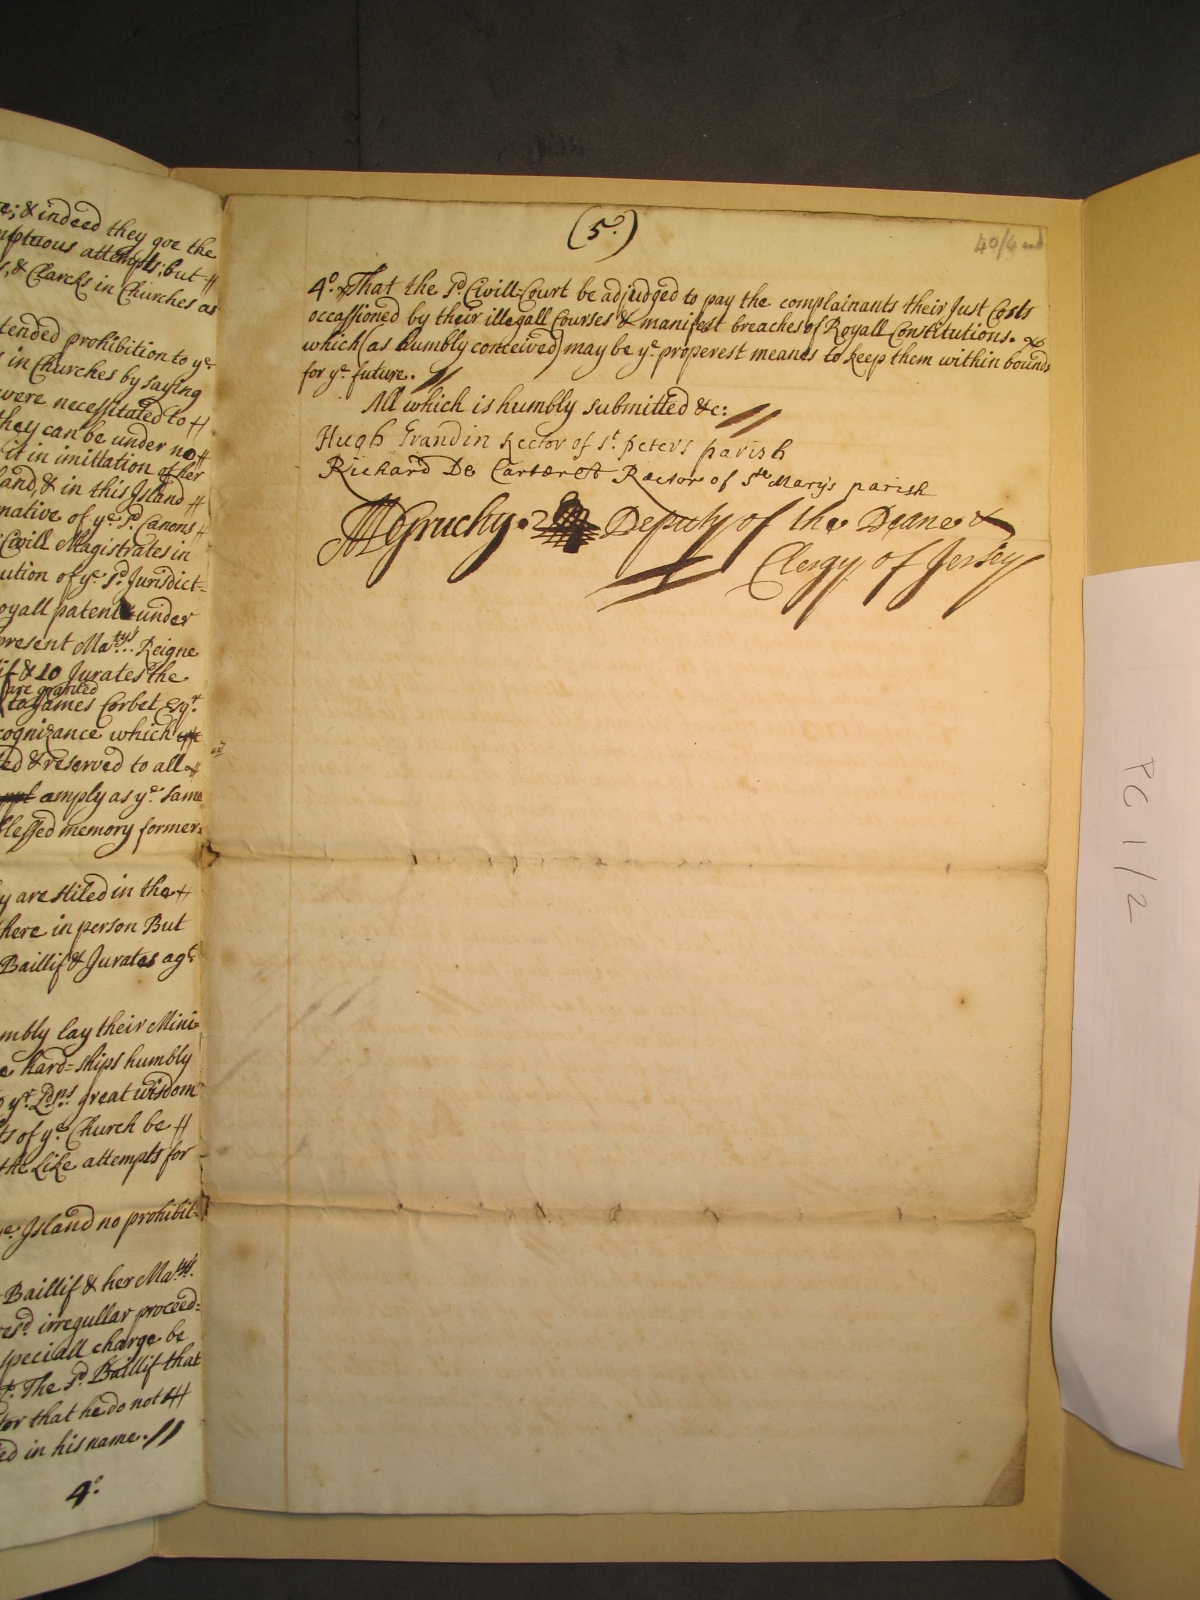 e; & indeed they goe the
mptuous attempts; but #
s, & Clarcks in Churches as
tended prohibition to yᵉ
s in Churches by saying
were necessitated to #
they can be under no #
it in imittation of her
land, & in this Island #
native of yᵉ sᵈ Canons #
Civill Magistrates in
ution of yᵉ sᵈ Jurisdict=
oyall patent under
present Maᵗʸˢ Reigne
if & 10 Jurates the
are granted
to James Corbet Esqʳ.
cognizance which
ed & reserved to all
amply as yᵉ same
blessed memory former
y are stiled in the
here in person But
Baillif & Jurates agᵗ
mbly lay their Mini
e hard=ships humbly
yʳ Ldᵖˢ great wisdom
ts of yᵉ Church be #
the Like attempts for
e Island no prohibit=
Baillif & her Maᵗʸˢ.
resᵈ irregullar proceed=
speciall charge be
The sᵈ Baillif that
tor that he do not
ed in his name. //
4.º
(5.º)
40/4 end
4.º That the sᵈ Civill-Court be adjudged to pay the complainants their Just Costs
occassioned by their illegall Courses & manifest breaches of Royall Constitutions.
which (as humbly conceived) may be yᵉ properest means to keep them within bounds
for yᵉ future. //
All which is humbly submitted &c: //
Hugh Grandin Rector of Sᵗ peters parish
Richard De Carteret Rector of Sᵗᵉ Mary's parish
DGruchy. Deputy of the Deane &
Clergy of Jersey
PC 1/2